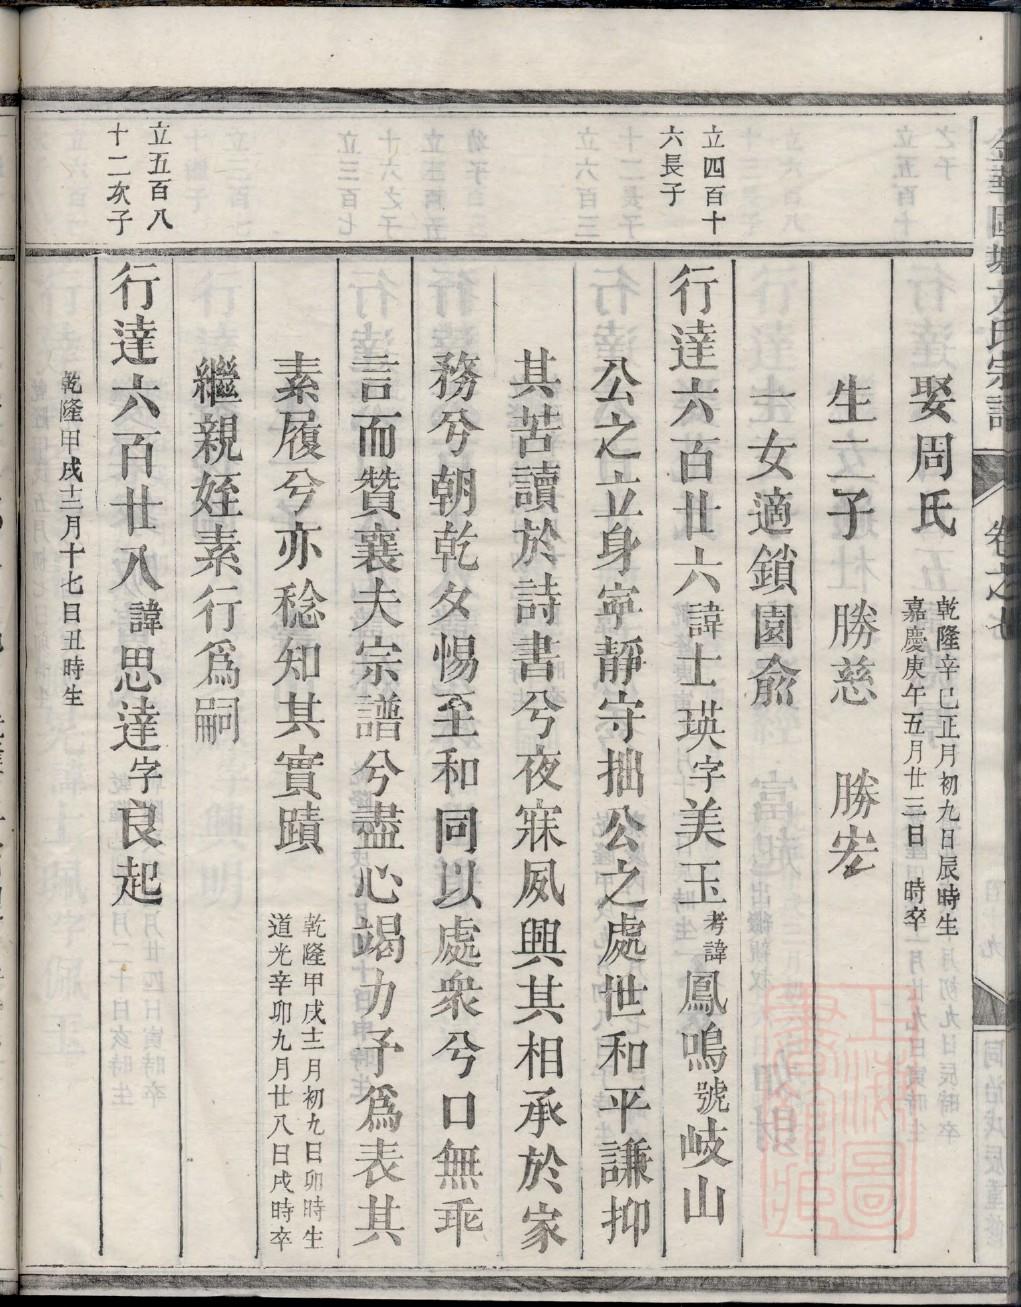 娶周氏
乾隆辛巳正月初九日辰時生
嘉慶庚午五月廿三日　時卒
生二子　勝慈　勝宏
一女適鎖園俞
立四百十
六長子
行達六百廿六諱士瑛字美玉考諱鳳鳴號岐山
公之立身寧靜守拙公之處世和平謙抑
其苦讀於詩書兮夜寐夙興其相承於家
務兮朝乾夕惕至和同以處衆兮口無乖
言而贊襄夫宗譜兮盡心竭力予爲表其
素履兮亦稔知其實蹟
乾隆甲戌十二月初九日卯時生
道光辛卯九月廿八日戌時卒
繼親姪素行爲嗣
立五百八
十二次子
行達六百廿八諱思達字良起
乾隆甲戌十二月十七日丑時生